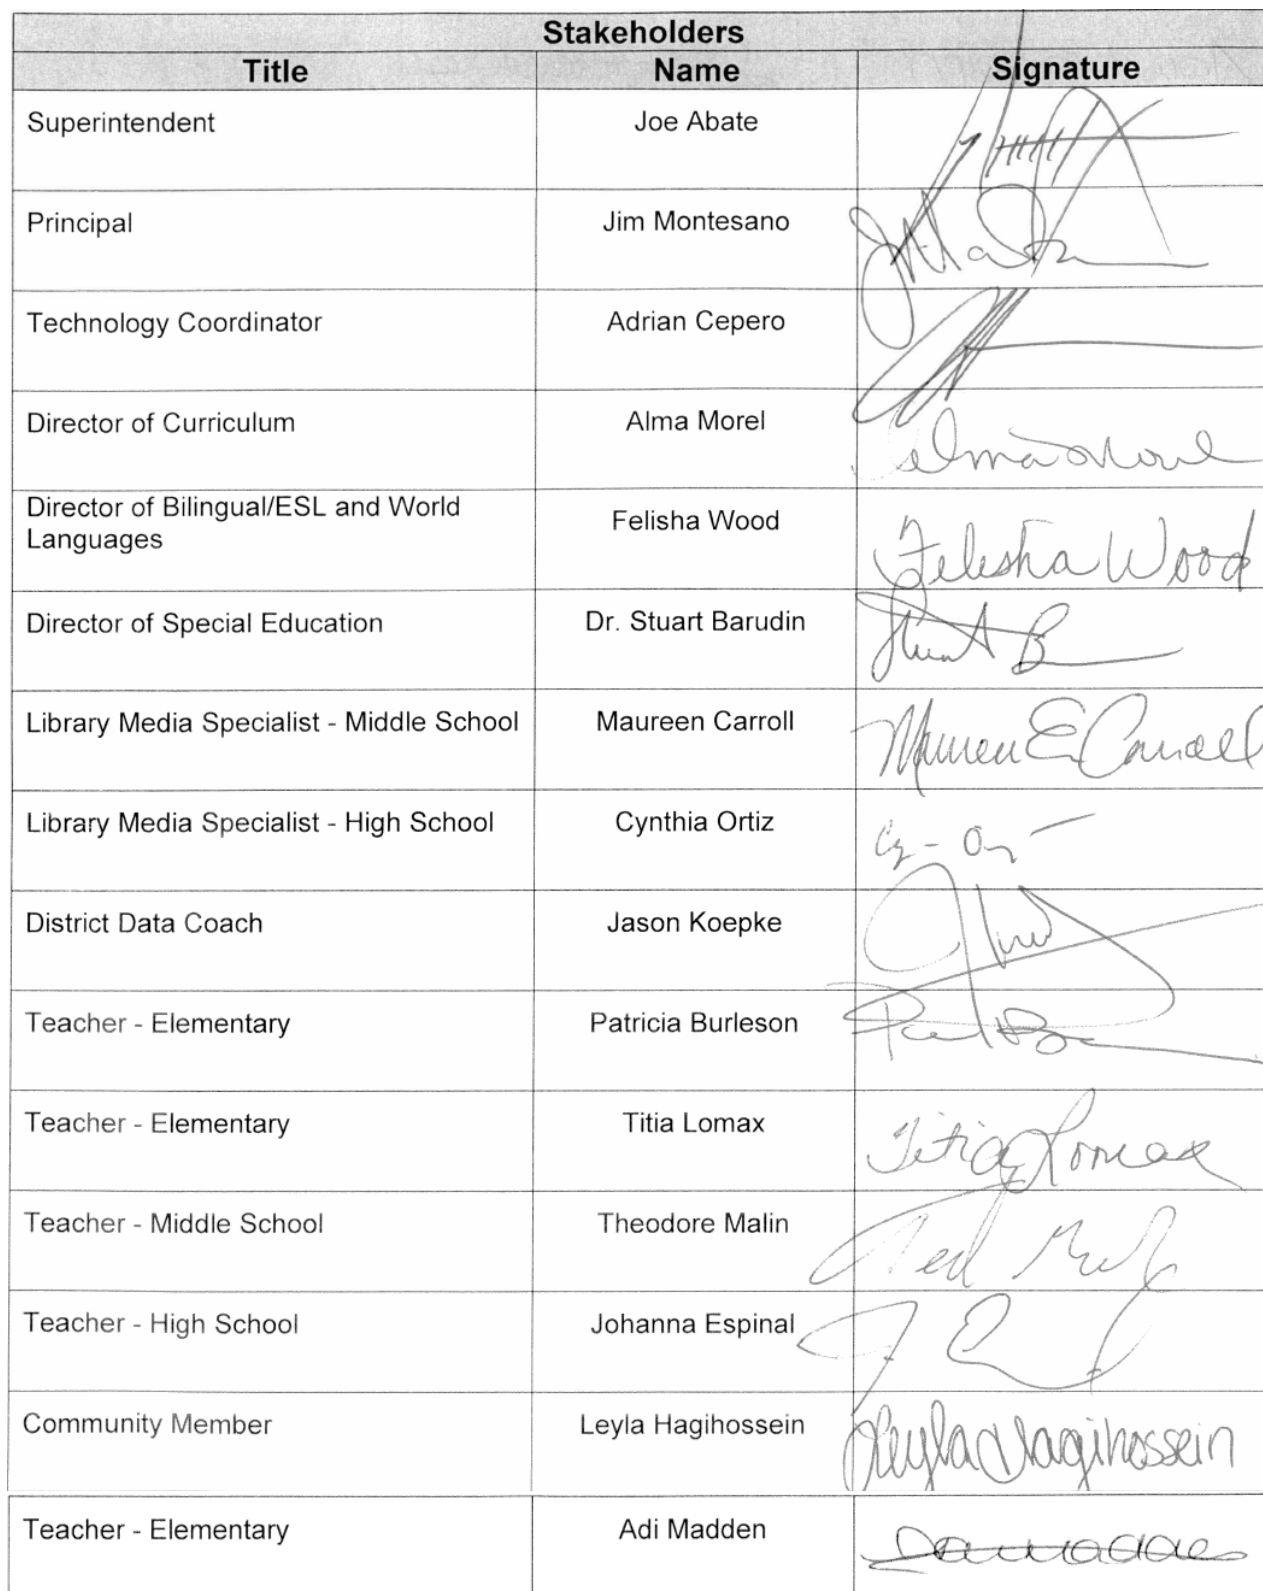 Stakeholders
Title Name Signature
Superintendent Joe Abate
Principal Jim Montesano
Technology Coordinator Adrian Cepero
Director of Curriculum Alma Morel Alma Morel
Director of Bilingual/ESL and World
Languages Felisha Wood Felisha Wood
Director of Special Education Dr. Stuart Barudin Stuart B
Library Media Specialist - Middle School Maureen Carroll Maureen E Carroll
Library Media Specialist - High School Cynthia Ortiz
District Data Coach Jason Koepke
Teacher - Elementary Patricia Burleson
Teacher - Elementary Titia Lomax Titia Lomax
Teacher - Middle School Theodore Malin
Teacher - High School Johanna Espinal
Community Member Leyla Hagihossein Leyla Hagihossein
Teacher - Elementary Adi Madden